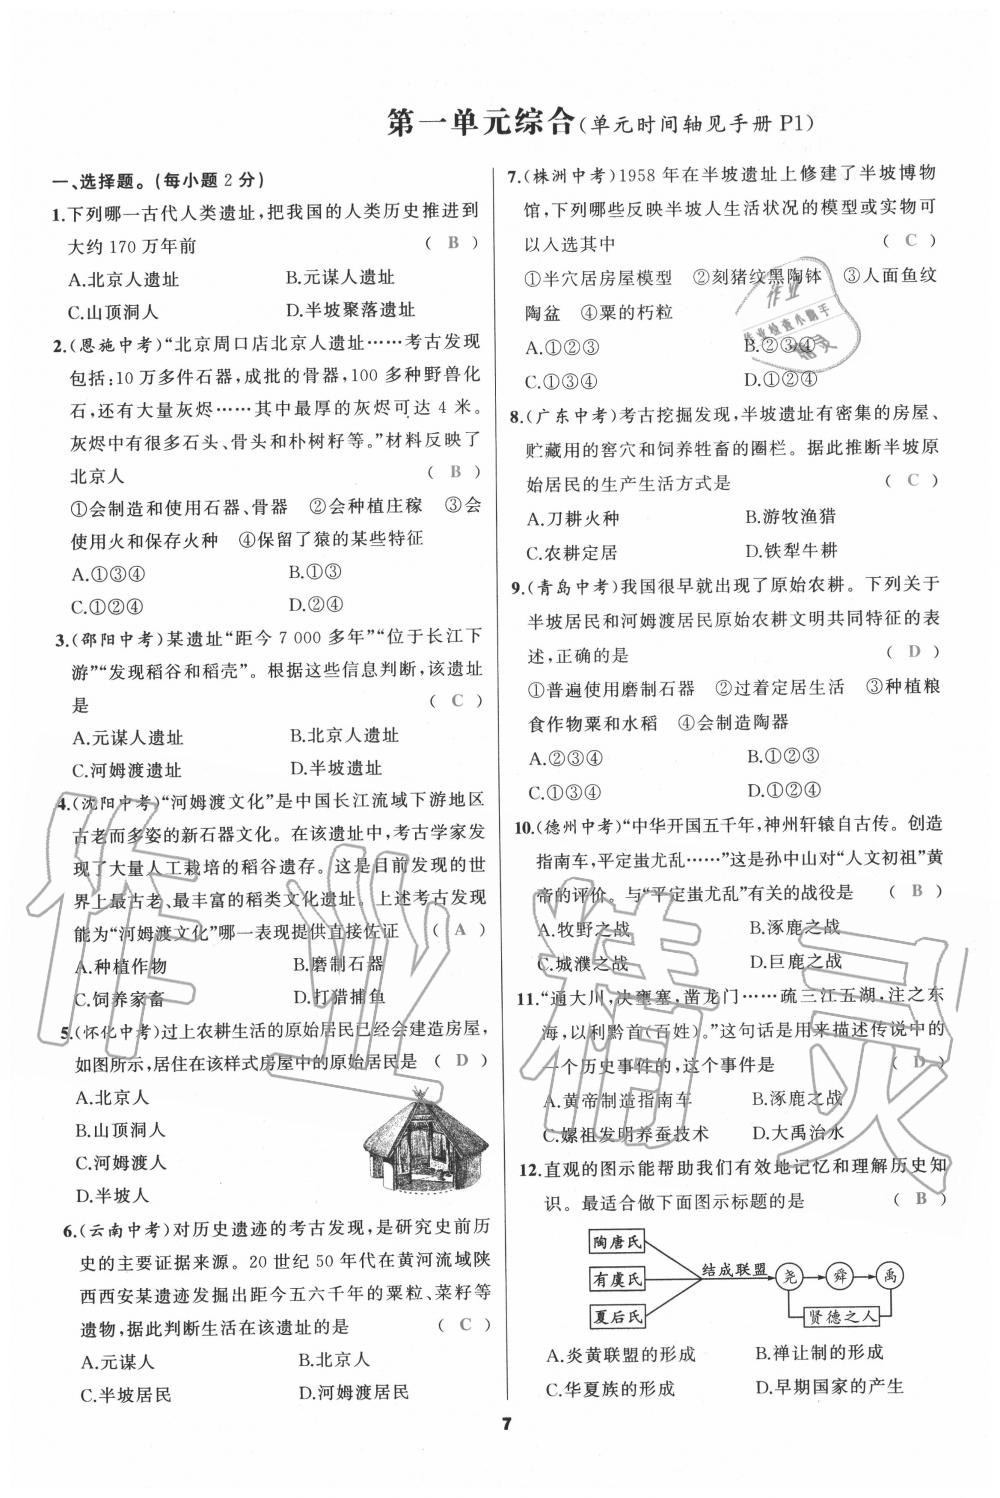 第一单元综合(单元时间轴见手册 P1)
一、选择题。(每小题 2 分)
1.下列哪一古代人类遗址,把我国的人类历史推进到
大约 170 万年前 ( B )
A.北京人遗址 B.元谋人遗址
C.山顶洞人 D.半坡聚落遗址
2.(恩施中考)“北京周口店北京人遗址……考古发现
包括:10 万多件石器,成批的骨器,100 多种野兽化
石,还有大量灰烬……其中最厚的灰烬可达 4 米。
灰烬中有很多石头、骨头和朴树籽等。”材料反映了
北京人 ( B )
①会制造和使用石器、骨器 ②会种植庄稼 ③会
使用火和保存火种 ④保留了猿的某些特征
A.①③④ B.①③
C.①②④ D.②④
3.(邵阳中考)某遗址“距今 7 000 多年”“位于长江下
游”“发现稻谷和稻壳”。根据这些信息判断,该遗址
是 ( C )
A.元谋人遗址 B.北京人遗址
C.河姆渡遗址 D.半坡遗址
4.(沈阳中考)“河姆渡文化”是中国长江流域下游地区
古老而多姿的新石器文化。在该遗址中,考古学家发
现了大量人工栽培的稻谷遗存。这是目前发现的世
界上最古老、最丰富的稻类文化遗址。上述考古发现
能为“河姆渡文化”哪一表现提供直接佐证 ( A )
A.种植作物 B.磨制石器
C.饲养家畜 D.打猎捕鱼
5.(怀化中考)过上农耕生活的原始居民已经会建造房屋,
如图所示,居住在该样式房屋中的原始居民是 ( D )
A.北京人
B.山顶洞人
C.河姆渡人
D.半坡人
6.(云南中考)对历史遗迹的考古发现,是研究史前历
史的主要证据来源。20 世纪 50 年代在黄河流域陕
西西安某遗迹发掘出距今五六千年的粟粒、菜籽等
遗物,据此判断生活在该遗址的是 ( C )
A.元谋人 B.北京人
C.半坡居民 D.河姆渡居民
7.(株洲中考)1958 年在半坡遗址上修建了半坡博物
馆,下列哪些反映半坡人生活状况的模型或实物可
以入选其中 ( C )
①半穴居房屋模型 ②刻猪纹黑陶钵 ③人面鱼纹
陶盆 ④粟的朽粒
A.①②③ B.②③④
C.①③④ D.①②④
8.(广东中考)考古挖掘发现,半坡遗址有密集的房屋、
贮藏用的窖穴和饲养牲畜的圈栏。据此推断半坡原
始居民的生产生活方式是 ( C )
A.刀耕火种 B.游牧渔猎
C.农耕定居 D.铁犁牛耕
9.(青岛中考)我国很早就出现了原始农耕。下列关于
半坡居民和河姆渡居民原始农耕文明共同特征的表
述,正确的是 ( D )
①普遍使用磨制石器 ②过着定居生活 ③种植粮
食作物粟和水稻 ④会制造陶器
A.②③④ B.①②③
C.①③④ D.①②④
10.(德州中考)“中华开国五千年,神州轩辕自古传。创造
指南车,平定蚩尤乱……”这是孙中山对“人文初祖”黄
帝的评价。与“平定蚩尤乱”有关的战役是 ( B )
A.牧野之战 B.涿鹿之战
C.城濮之战 D.巨鹿之战
11.“通大川,决壅塞,凿龙门……疏三江五湖,注之东
海,以利黔首(百姓)。”这句话是用来描述传说中的
一个历史事件的,这个事件是 ( D )
A.黄帝制造指南车 B.涿鹿之战
C.嫘祖发明养蚕技术 D.大禹治水
12.直观的图示能帮助我们有效地记忆和理解历史知
识。最适合做下面图示标题的是 ( B )
陶唐氏
有虞氏
夏后氏
结成联盟
尧 舜 禹
贤德之人
A.炎黄联盟的形成 B.禅让制的形成
C.华夏族的形成 D.早期国家的产生
7
作业精灵
作业
作业检查小帮手
精灵